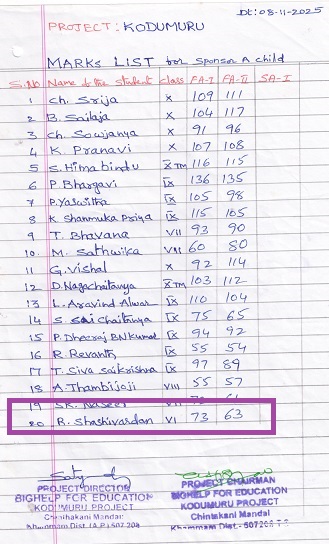 Dt: 08-11-2025
PROJECT: KODUMURU
MARKS LIST for Sponsor A child
S.No Name of the student class FA-I FA-II SA-I
1 Ch. Srija X 109 111
2 B. Sailaja X 104 117
3 Ch. Soujanya X 91 96
4 K. Pranavi X 107 108
5 S. Himabindu X TM 116 115
6 P. Bhargavi IX 136 135
7 P. Yaswitha IX 105 98
8 K Shanmuka Priya IX 115 105
9 T. Bhavana VII 93 90
10. M. Sathwika VII 60 80
11 G. Vishal X 92 114
12 D. Nagachaitanya X TM 103 112
13 L. Aravind Alwar IX 110 104
14 S. Sai Chaitanya IX 75 65
15 P. Dheeraj BN Kumar IX 94 92
16 R. Revanth IX 55 54
17 T. Siva Saikrishna IX 97 89
18 A. ThambiJoji VIII 55 57
19 SK. Naseer VII
20 B. Shashivardan VI 73 63
PROJECT DIRECTOR
BIGHELP FOR EDUCATION
KODUMURU PROJECT
Chintakani Mandal
Khammam Dist. (A.P) 507 208
PROJECT CHAIRMAN
BIGHELP FOR EDUCATION
KODUMURU PROJECT
Chintakani Mandal
Khammam Dist.- 507208 T.S